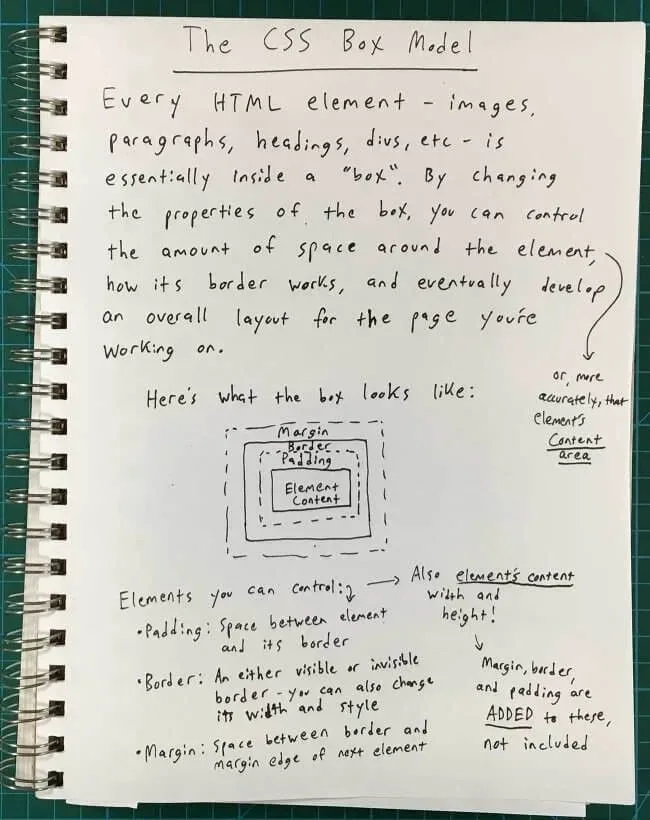 The CSS Box Model
Every HTML element - images,
paragraphs, headings, divs, etc - is
essentially inside a "box". By changing
the properties of the box, you can control
the amount of space around the element,
how its border works, and eventually develop
an overall layout for the page you're
working on.
or, more
accurately, that
element's
content
area
Here's what the box looks like:
Margin
Border
Padding
Element
Content
Elements you can control:
Also element's content
width and
height!
• Padding: Space between element
and its border
• Border: An either visible or invisible
border - you can also change
its width and style
• Margin: Space between border and
margin edge of next element
Margin, border,
and padding are
ADDED to these,
not included